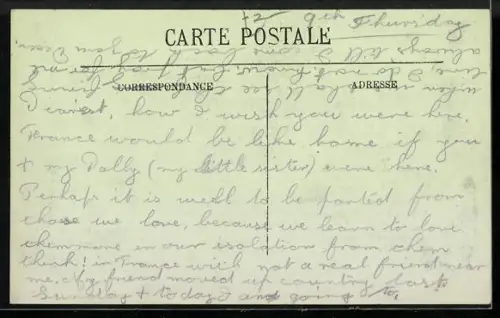 72 9th Thursday
CARTE POSTALE
CORRESPONDANCE
ADRESSE
Dearest, how I wish you were here.
France would be like home if you
+ my Dolly (my little sister) were here.
Perhaps it is well to be parted from
those we love, because we learn to love
them more in our isolation from them
think! in France with not a real friend near
me. My friend moved up country last
Sunday + today I am going to,
when I shall see
love, I do not know, but
always till I come back to you